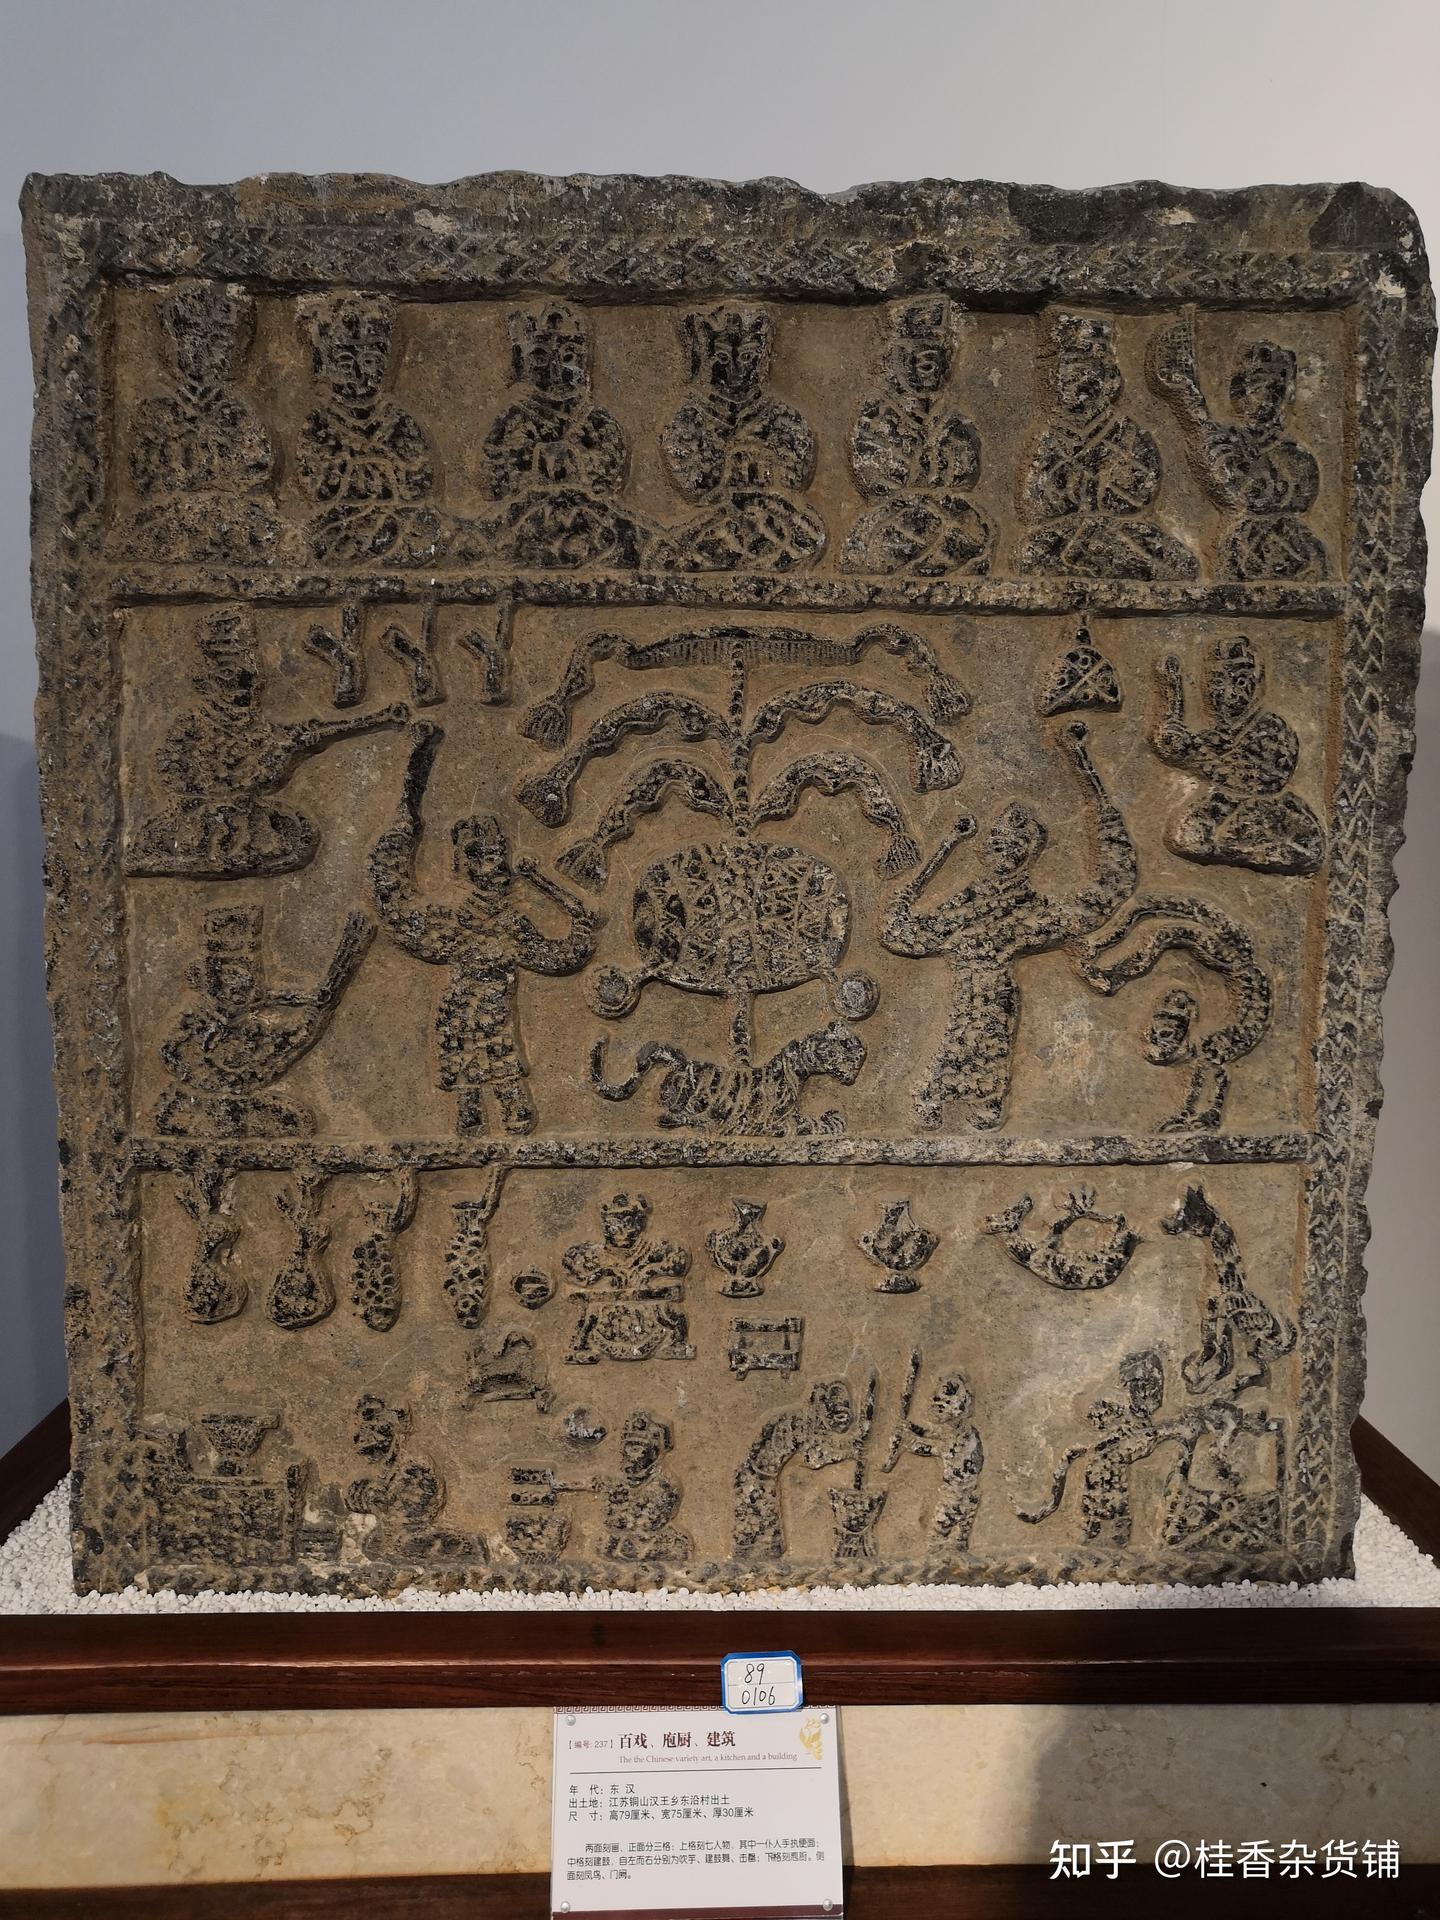 89
0106
【编号: 237】百戏、庖厨、建筑
The the Chinese variety art, a kitchen and a building
年 代：东 汉
出土地：江苏铜山汉王乡东沿村出土
尺 寸：高79厘米、宽75厘米、厚30厘米
两面刻画，正面分三格：上格刻七人物，其中一仆人手执便面；
中格刻建鼓，自左而右分别为吹竽、建鼓舞、击磬；下格刻庖厨。侧
面刻凤鸟、门阙。
知乎 @桂香杂货铺